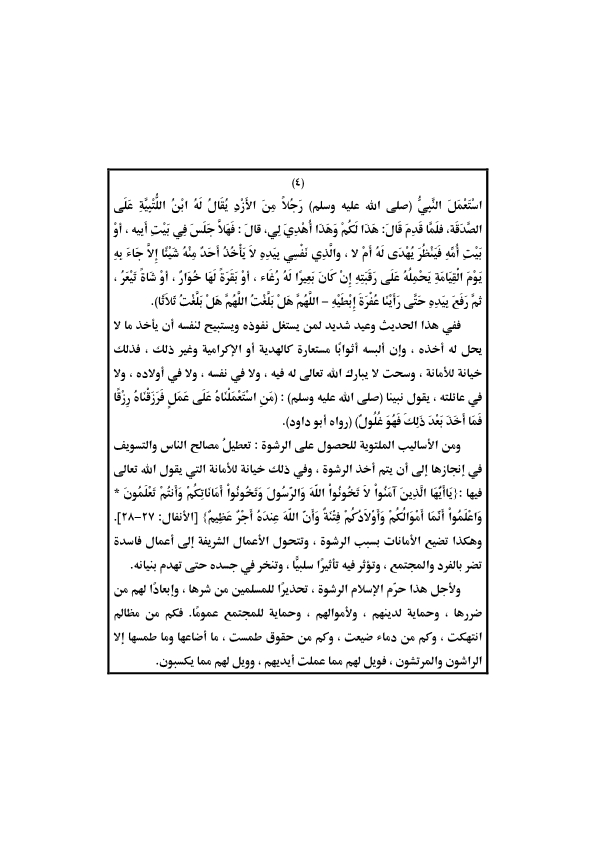 (٤)
اسْتَعْمَلَ النَّبِيُّ (صلى الله عليه وسلم) رَجُلاً مِنَ الأَزْدِ يُقَالُ لَهُ ابْنُ اللُّتْبِيَّةِ عَلَى
الصَّدَقَةِ، فَلَمَّا قَدِمَ قَالَ: هَذَا لَكُمْ وَهَذَا أُهْدِيَ لِي، قالَ : فَهَلاَّ جَلَسَ فِي بَيْتِ أَبِيه ، أوْ
بَيْتِ أُمِّهِ فَيَنْظُرَ يُهْدَى لَهُ أمْ لا ، والَّذِي نَفْسِي بِيَدِهِ لاَ يَأْخُذُ أحَدٌ مِنْهُ شَيْئًا إِلاَّ جَاءَ بِهِ
يَوْمَ الْقِيَامَةِ يَحْمِلُهُ عَلَى رَقَبَتِهِ إِنْ كَانَ بَعِيرًا لَهُ رُغَاء ، أوْ بَقَرَةً لَهَا خُوَارٌ ، أوْ شَاةً تَيْعَرُ ،
ثمَّ رَفَعَ بِيَدِهِ حَتَّى رَأَيْنَا عُفْرَةَ إِبْطَيْهِ – اللَّهُمَّ هَلْ بَلَّغْتُ اللَّهُمَّ هَلْ بَلَّغْتُ ثَلاَثًا).
ففي هذا الحديث وعيد شديد لمن يستغل نفوذه ويستبيح لنفسه أن يأخذ ما لا
يحل له أخذه ، وإن ألبسه أثوابًا مستعارة كالهدية أو الإكرامية وغير ذلك ، فذلك
خيانة للأمانة ، وسحت لا يبارك الله تعالى له فيه ، ولا في نفسه ، ولا في أولاده ، ولا
في عائلته ، يقول نبينا (صلى الله عليه وسلم) : (مَنِ اسْتَعْمَلْنَاهُ عَلَى عَمَلٍ فَرَزَقْنَاهُ رِزْقًا
فَمَا أَخَذَ بَعْدَ ذَلِكَ فَهُوَ غُلُولٌ) (رواه أبو داود).
ومن الأساليب الملتوية للحصول على الرشوة : تعطيلُ مصالح الناس والتسويف
في إنجازها إلى أن يتم أخذ الرشوة ، وفي ذلك خيانة للأمانة التي يقول الله تعالى
فيها : {يَاأَيُّهَا الَّذِينَ آمَنُواْ لاَ تَخُونُواْ اللّهَ وَالرَّسُولَ وَتَخُونُواْ أَمَانَاتِكُمْ وَأَنتُمْ تَعْلَمُونَ *
وَاعْلَمُواْ أَنَّمَا أَمْوَالُكُمْ وَأَوْلاَدُكُمْ فِتْنَةٌ وَأَنَّ اللّهَ عِندَهُ أَجْرٌ عَظِيمٌ} [الأنفال: ٢٧–٢٨].
وهكذا تضيع الأمانات بسبب الرشوة ، وتتحول الأعمال الشريفة إلى أعمال فاسدة
تضر بالفرد والمجتمع ، وتؤثر فيه تأثيرًا سلبيًّا ، وتنخر في جسده حتى تهدم بنيانه.
ولأجل هذا حرّم الإسلام الرشوة ، تحذيرًا للمسلمين من شرها ، وإبعادًا لهم من
ضررها ، وحماية لدينهم ، ولأموالهم ، وحماية للمجتمع عمومًا. فكم من مظالم
انتهكت ، وكم من دماء ضيعت ، وكم من حقوق طمست ، ما أضاعها وما طمسها إلا
الراشون والمرتشون ، فويل لهم مما عملت أيديهم ، وويل لهم مما يكسبون.